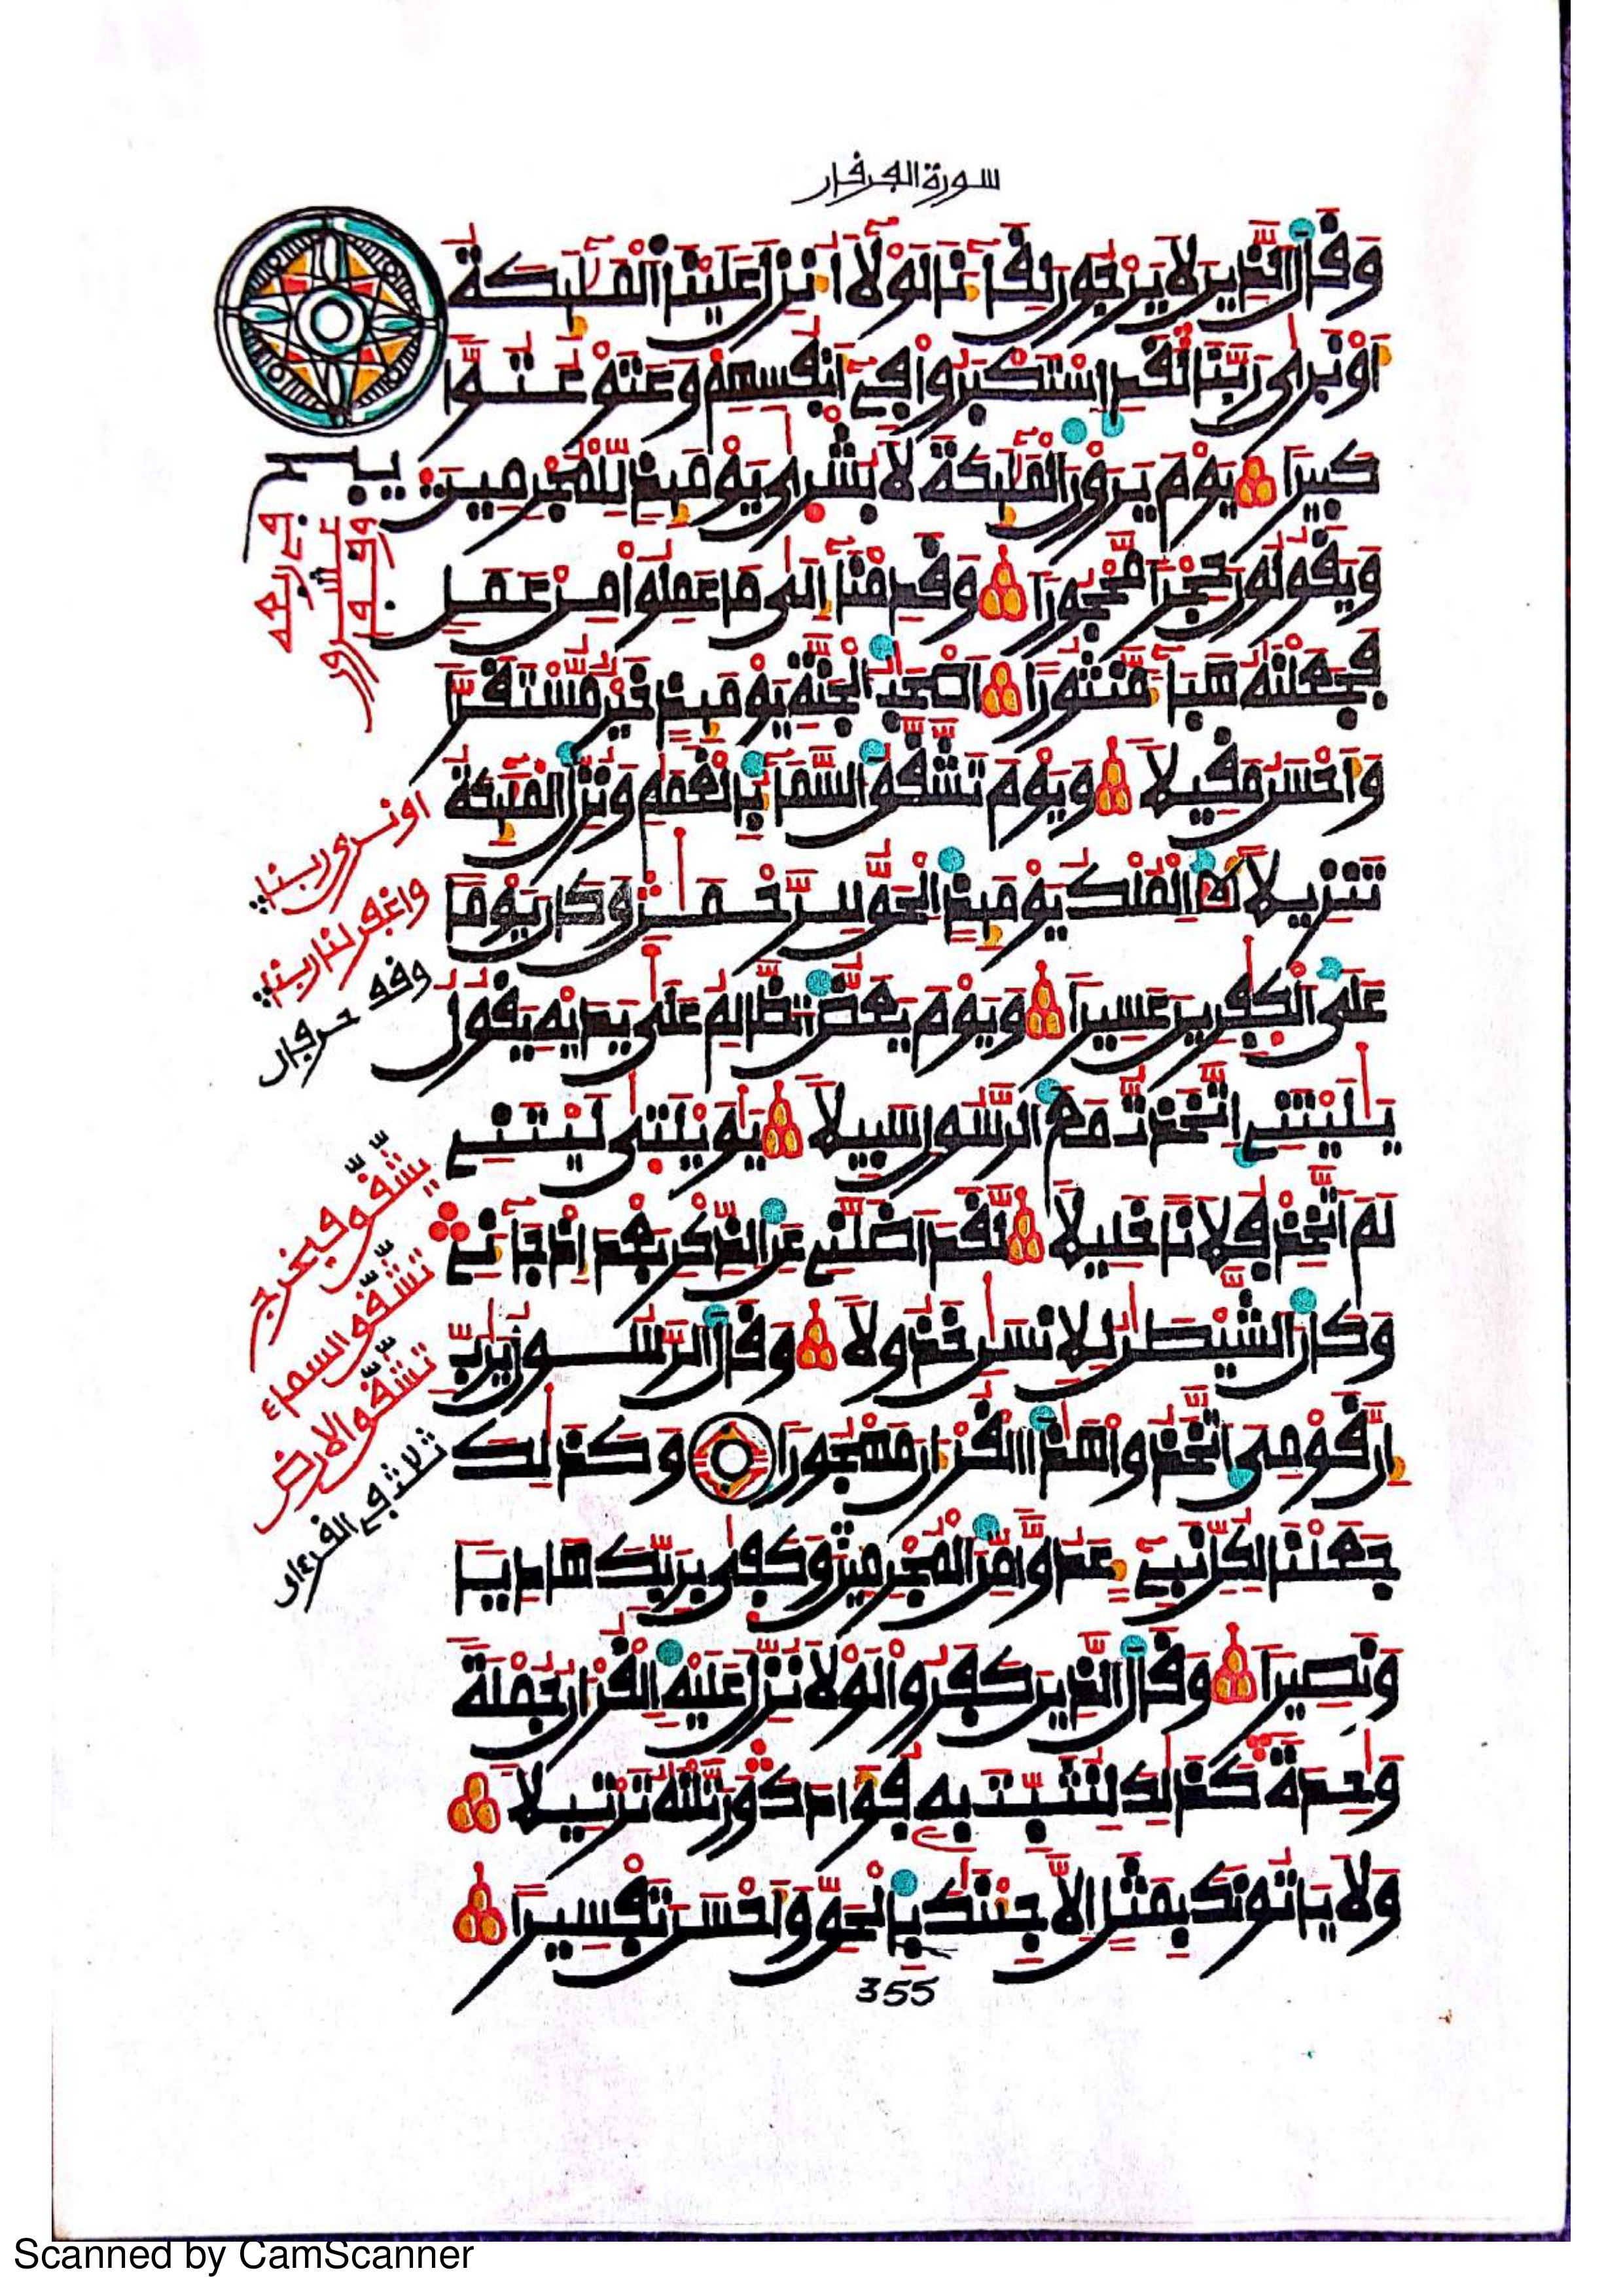 سورة الفرقان
وَقَالَ الذِينَ لَا يَرْجُونَ لِقَآءَنَا لَوْلَآ أُنزِلَ عَلَيْنَا الْمَلَٰٓئِكَةُ
أَوْ نَرَىٰ رَبَّنَا لَقَدِ اسْتَكْبَرُوا فِےٓ أَنفُسِهِمْ وَعَتَوْ عُتُوّاً
كَبِيراً يَوْمَ يَرَوْنَ الْمَلَٰٓئِكَةَ لَا بُشْرَىٰ يَوْمَئِذٍ لِّلْمُجْرِمِينَ
وَيَقُولُونَ حِجْراً مَّحْجُوراً وَقَدِمْنَآ إِلَىٰ مَا عَمِلُوا مِنْ عَمَلٍ
فَجَعَلْنَٰهُ هَبَآءً مَّنثُوراً أَصْحَٰبُ الْجَنَّةِ يَوْمَئِذٍ خَيْرٌ مُّسْتَقَرّاً
وَأَحْسَنُ مَقِيلاً وَيَوْمَ تَشَّقَّقُ السَّمَآءُ بِالْغَمَٰمِ وَنُزِّلَ الْمَلَٰٓئِكَةُ
تَنزِيلاً الْمُلْكُ يَوْمَئِذٍ الْحَقُّ لِلرَّحْمَٰنِ وَكَانَ يَوْماً
عَلَى الْكٰفِرِينَ عَسِيراً وَيَوْمَ يَعَضُّ الظَّالِمُ عَلَىٰ يَدَيْهِ يَقُولُ
يَٰلَيْتَنِے اِتَّخَذتُّ مَعَ الرَّسُولِ سَبِيلاً يَٰوَيْلَتَىٰ لَيْتَنِے
لَمَ اَتَّخِذْ فُلَاناً خَلِيلاً لَّقَدَ اَضَلَّنِے عَنِ الذِّكْرِ بَعْدَ إِذْ جَآءَنِے
وَكَانَ الشَّيْطَٰنُ لِلْإِنسَٰنِ خَذُولاً وَقَالَ الرَّسُولُ يَٰرَبِّ
إِنَّ قَوْمِىَ اَتَّخَذُوا هَٰذَا الْقُرْءَانَ مَهْجُوراً وَكَذَٰلِكَ
جَعَلْنَا لِكُلِّ نَبِےٓءٍ عَدُوّاً مِّنَ الْمُجْرِمِينَ وَكَفَىٰ بِرَبِّكَ هَادِياً
وَنَصِيراً وَقَالَ الذِينَ كَفَرُوا لَوْلَا نُزِّلَ عَلَيْهِ الْقُرْءَانُ جُمْلَةً
وَٰحِدَةً كَذَٰلِكَ لِنُثَبِّتَ بِهِ فُؤَادَكَ وَرَتَّلْنَٰهُ تَرْتِيلاً
وَلَا يَأْتُونَكَ بِمَثَلٍ إِلَّا جِئْنَٰكَ بِالْحَقِّ وَأَحْسَنَ تَفْسِيراً
اونرى ربنا
واغفر لنا ربنا
وقف حرفان
يشّقّق فيخرج
تشّقّق السماء
تشّقّق الارض
ثلاث في القرءان
355
Scanned by CamScanner